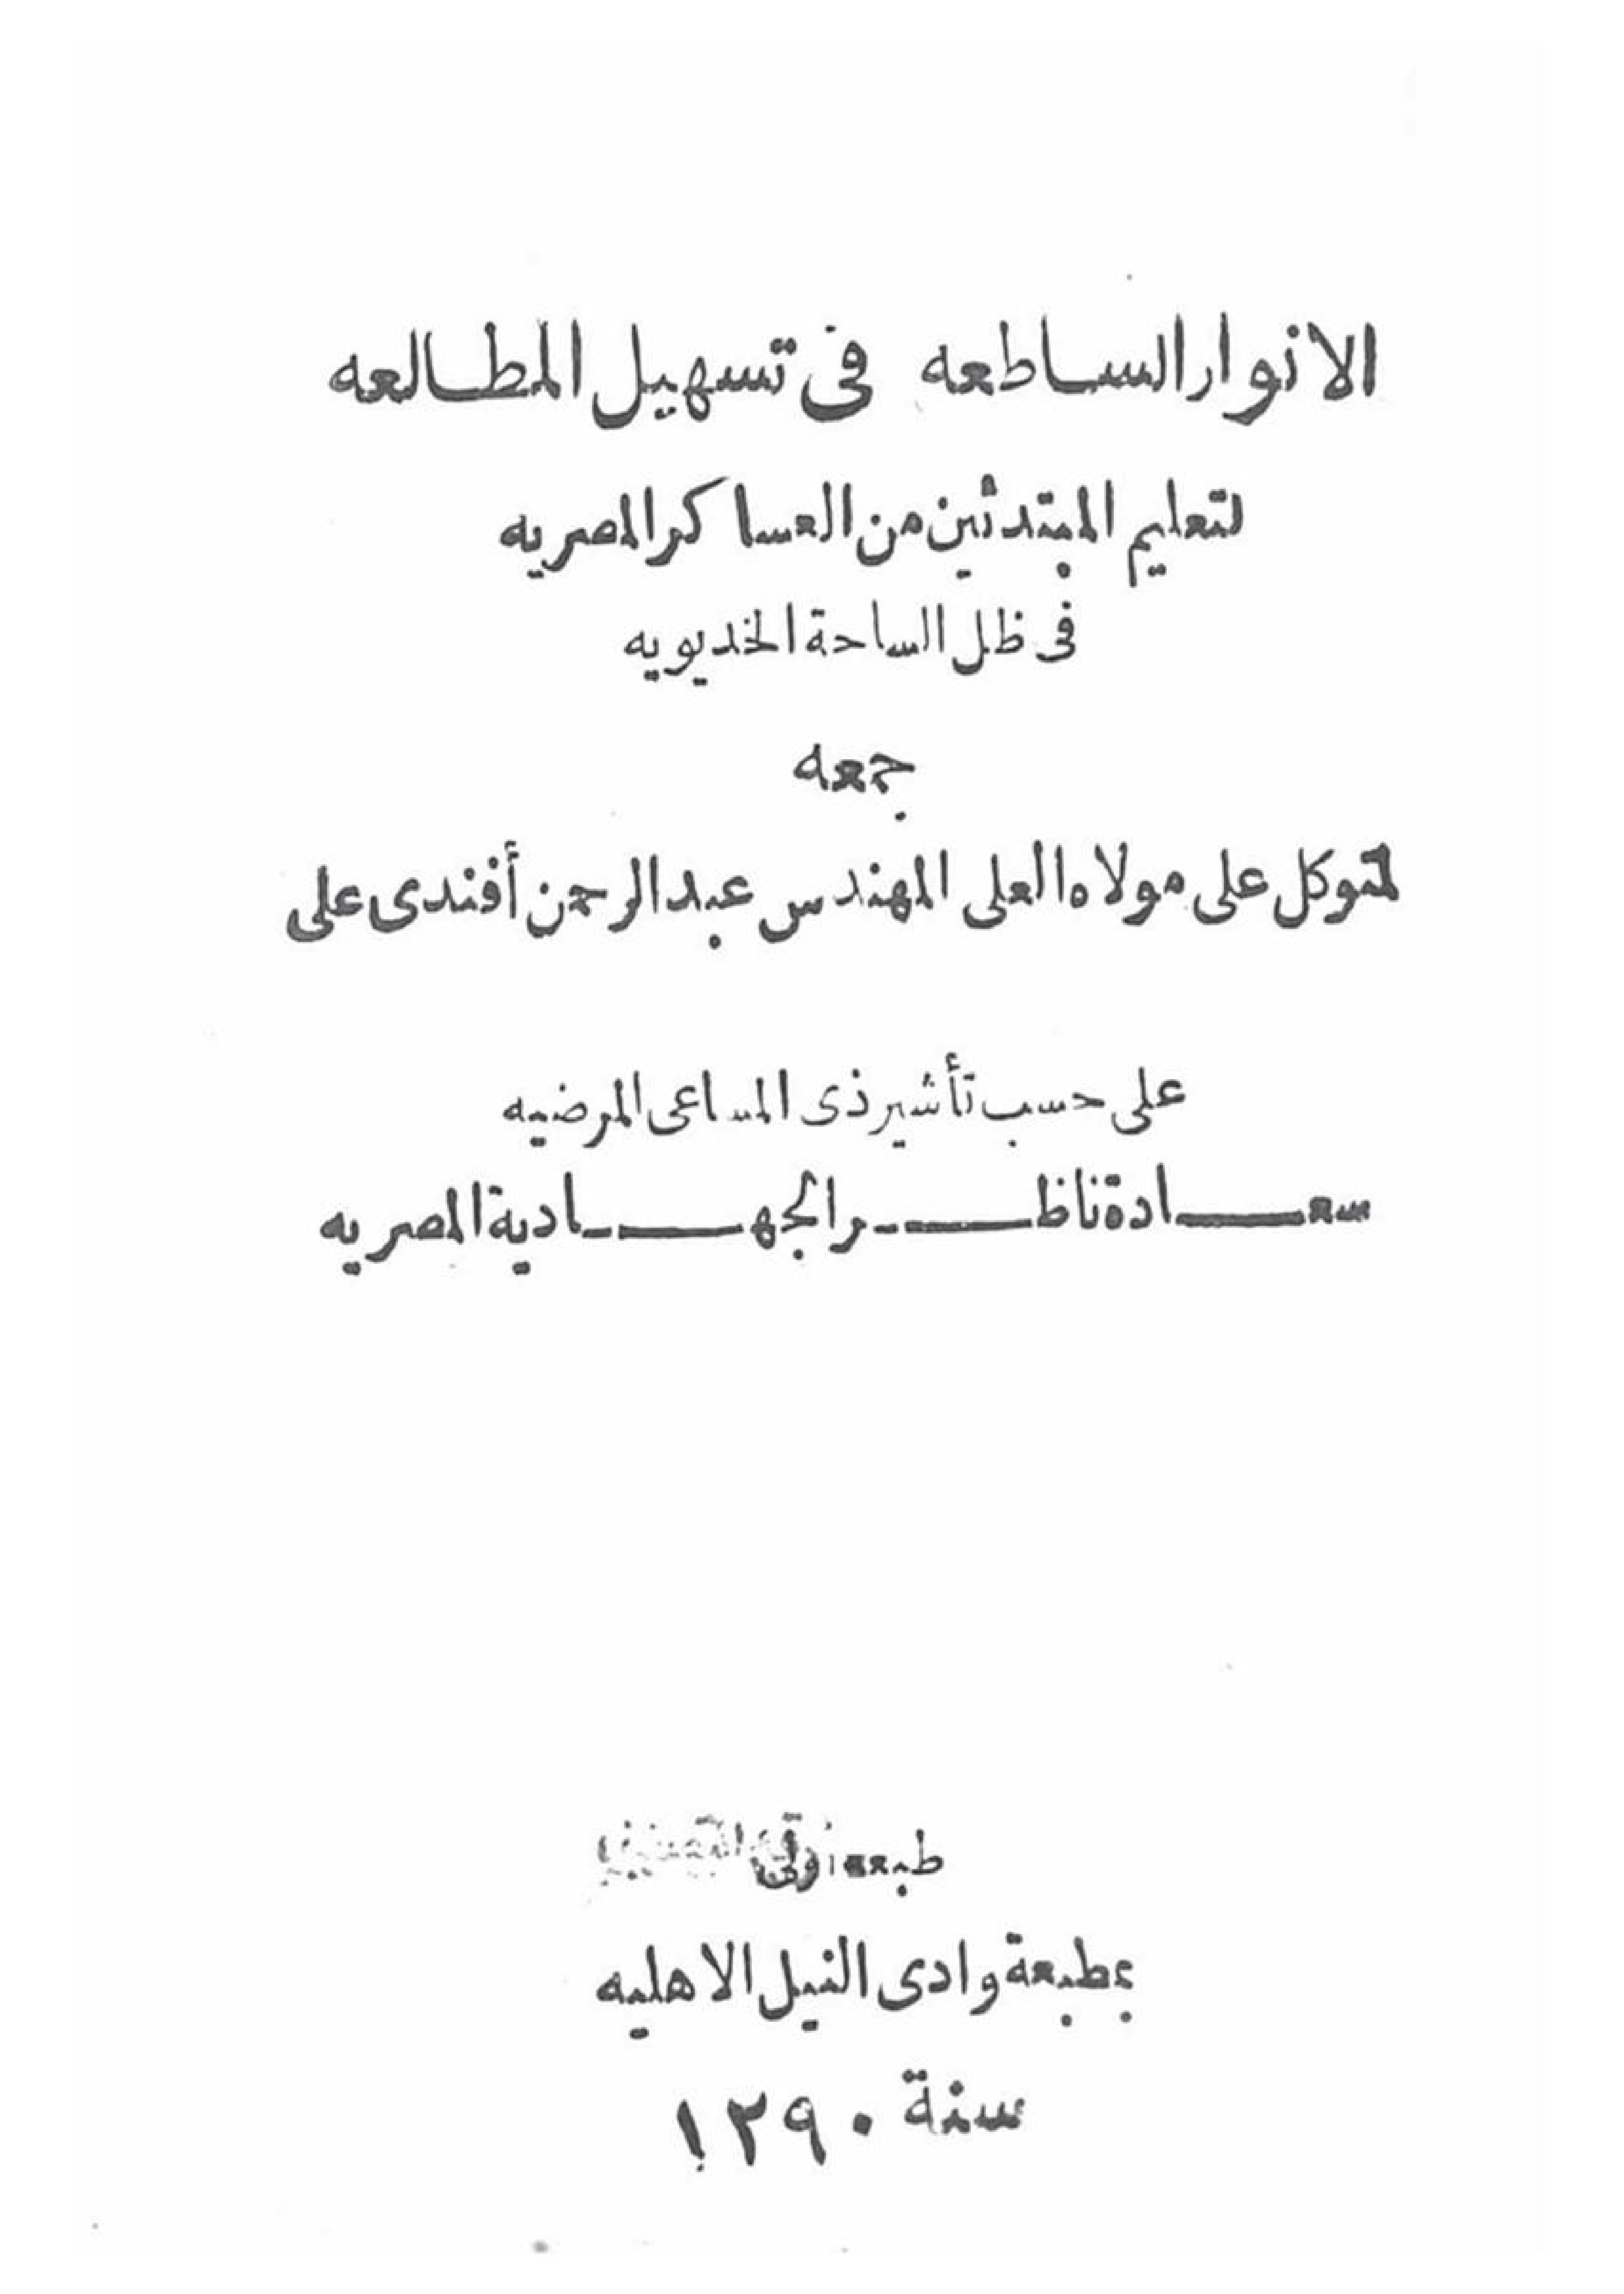 الانوار الساطعه فى تسهيل المطالعه
لتعليم المبتدئين من العساكر المصريه
فى ظل الساحة الخديويه
جمعه
المتوكل على مولاه العلى المهندس عبد الرحمن أفندى على
على حسب تأشير ذى المساعى المرضيه
سعادة ناظر الجهادية المصريه
طبعة أولى
بمطبعة وادى النيل الاهليه
سنة ١٢٩٠